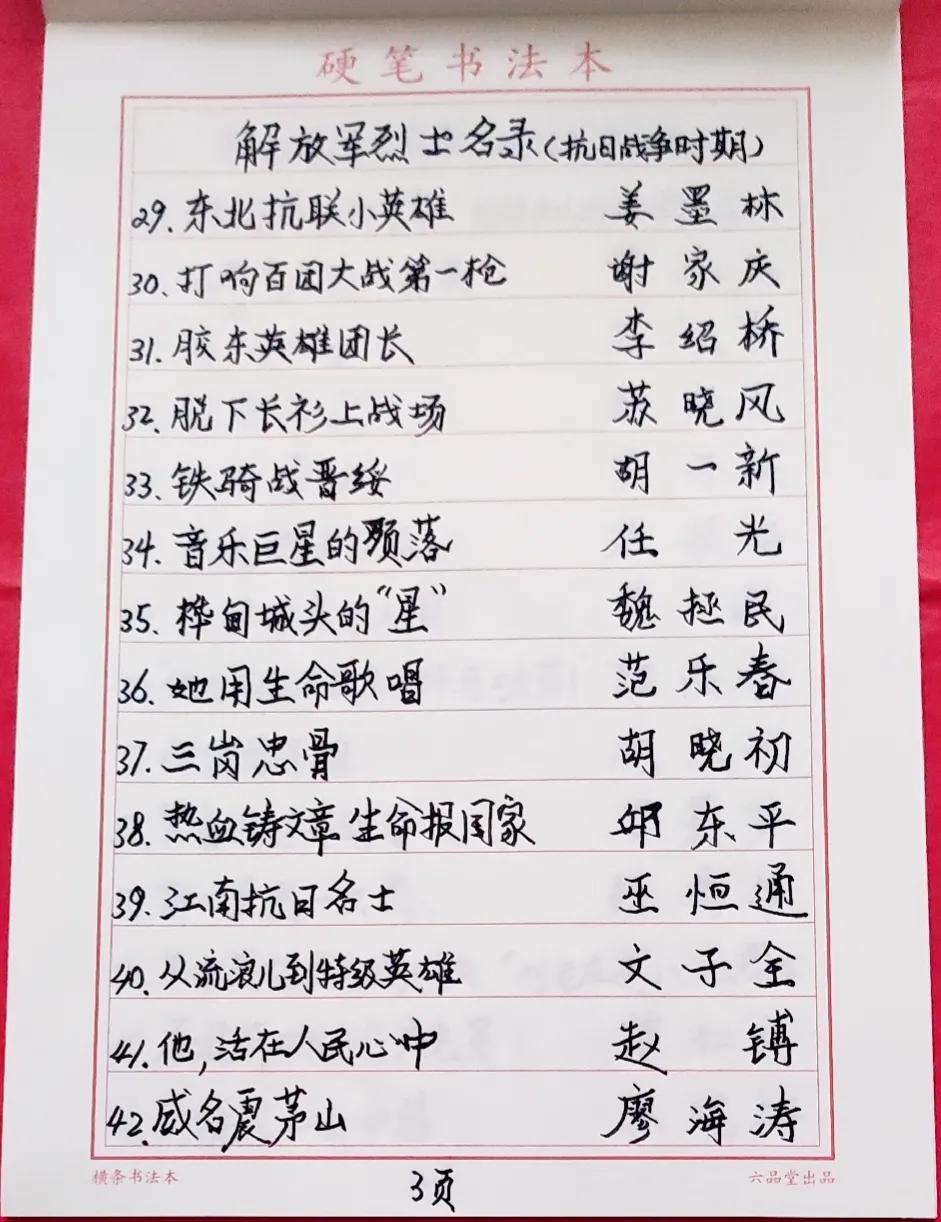 硬笔书法本
解放军烈士名录(抗日战争时期)
29.东北抗联小英雄 姜墨林
30、打响百团大战第一枪 谢家庆
31.胶东英雄团长 李绍桥
32、脱下长衫上战场 苏晓风
33.铁骑战晋绥 胡一新
34.音乐巨星的殒落 任光
35.桦甸城头的“星” 魏拯民
36.她用生命歌唱 范乐春
37.三岗忠骨 胡晓初
38.热血铸文章生命报国家 邱东平
39.江南抗日名士 巫恒通
40.从流浪儿到特级英雄 文子全
41.他,活在人民心中 赵镈
42.威名震茅山 廖海涛
横条书法本 3页 六品堂出品